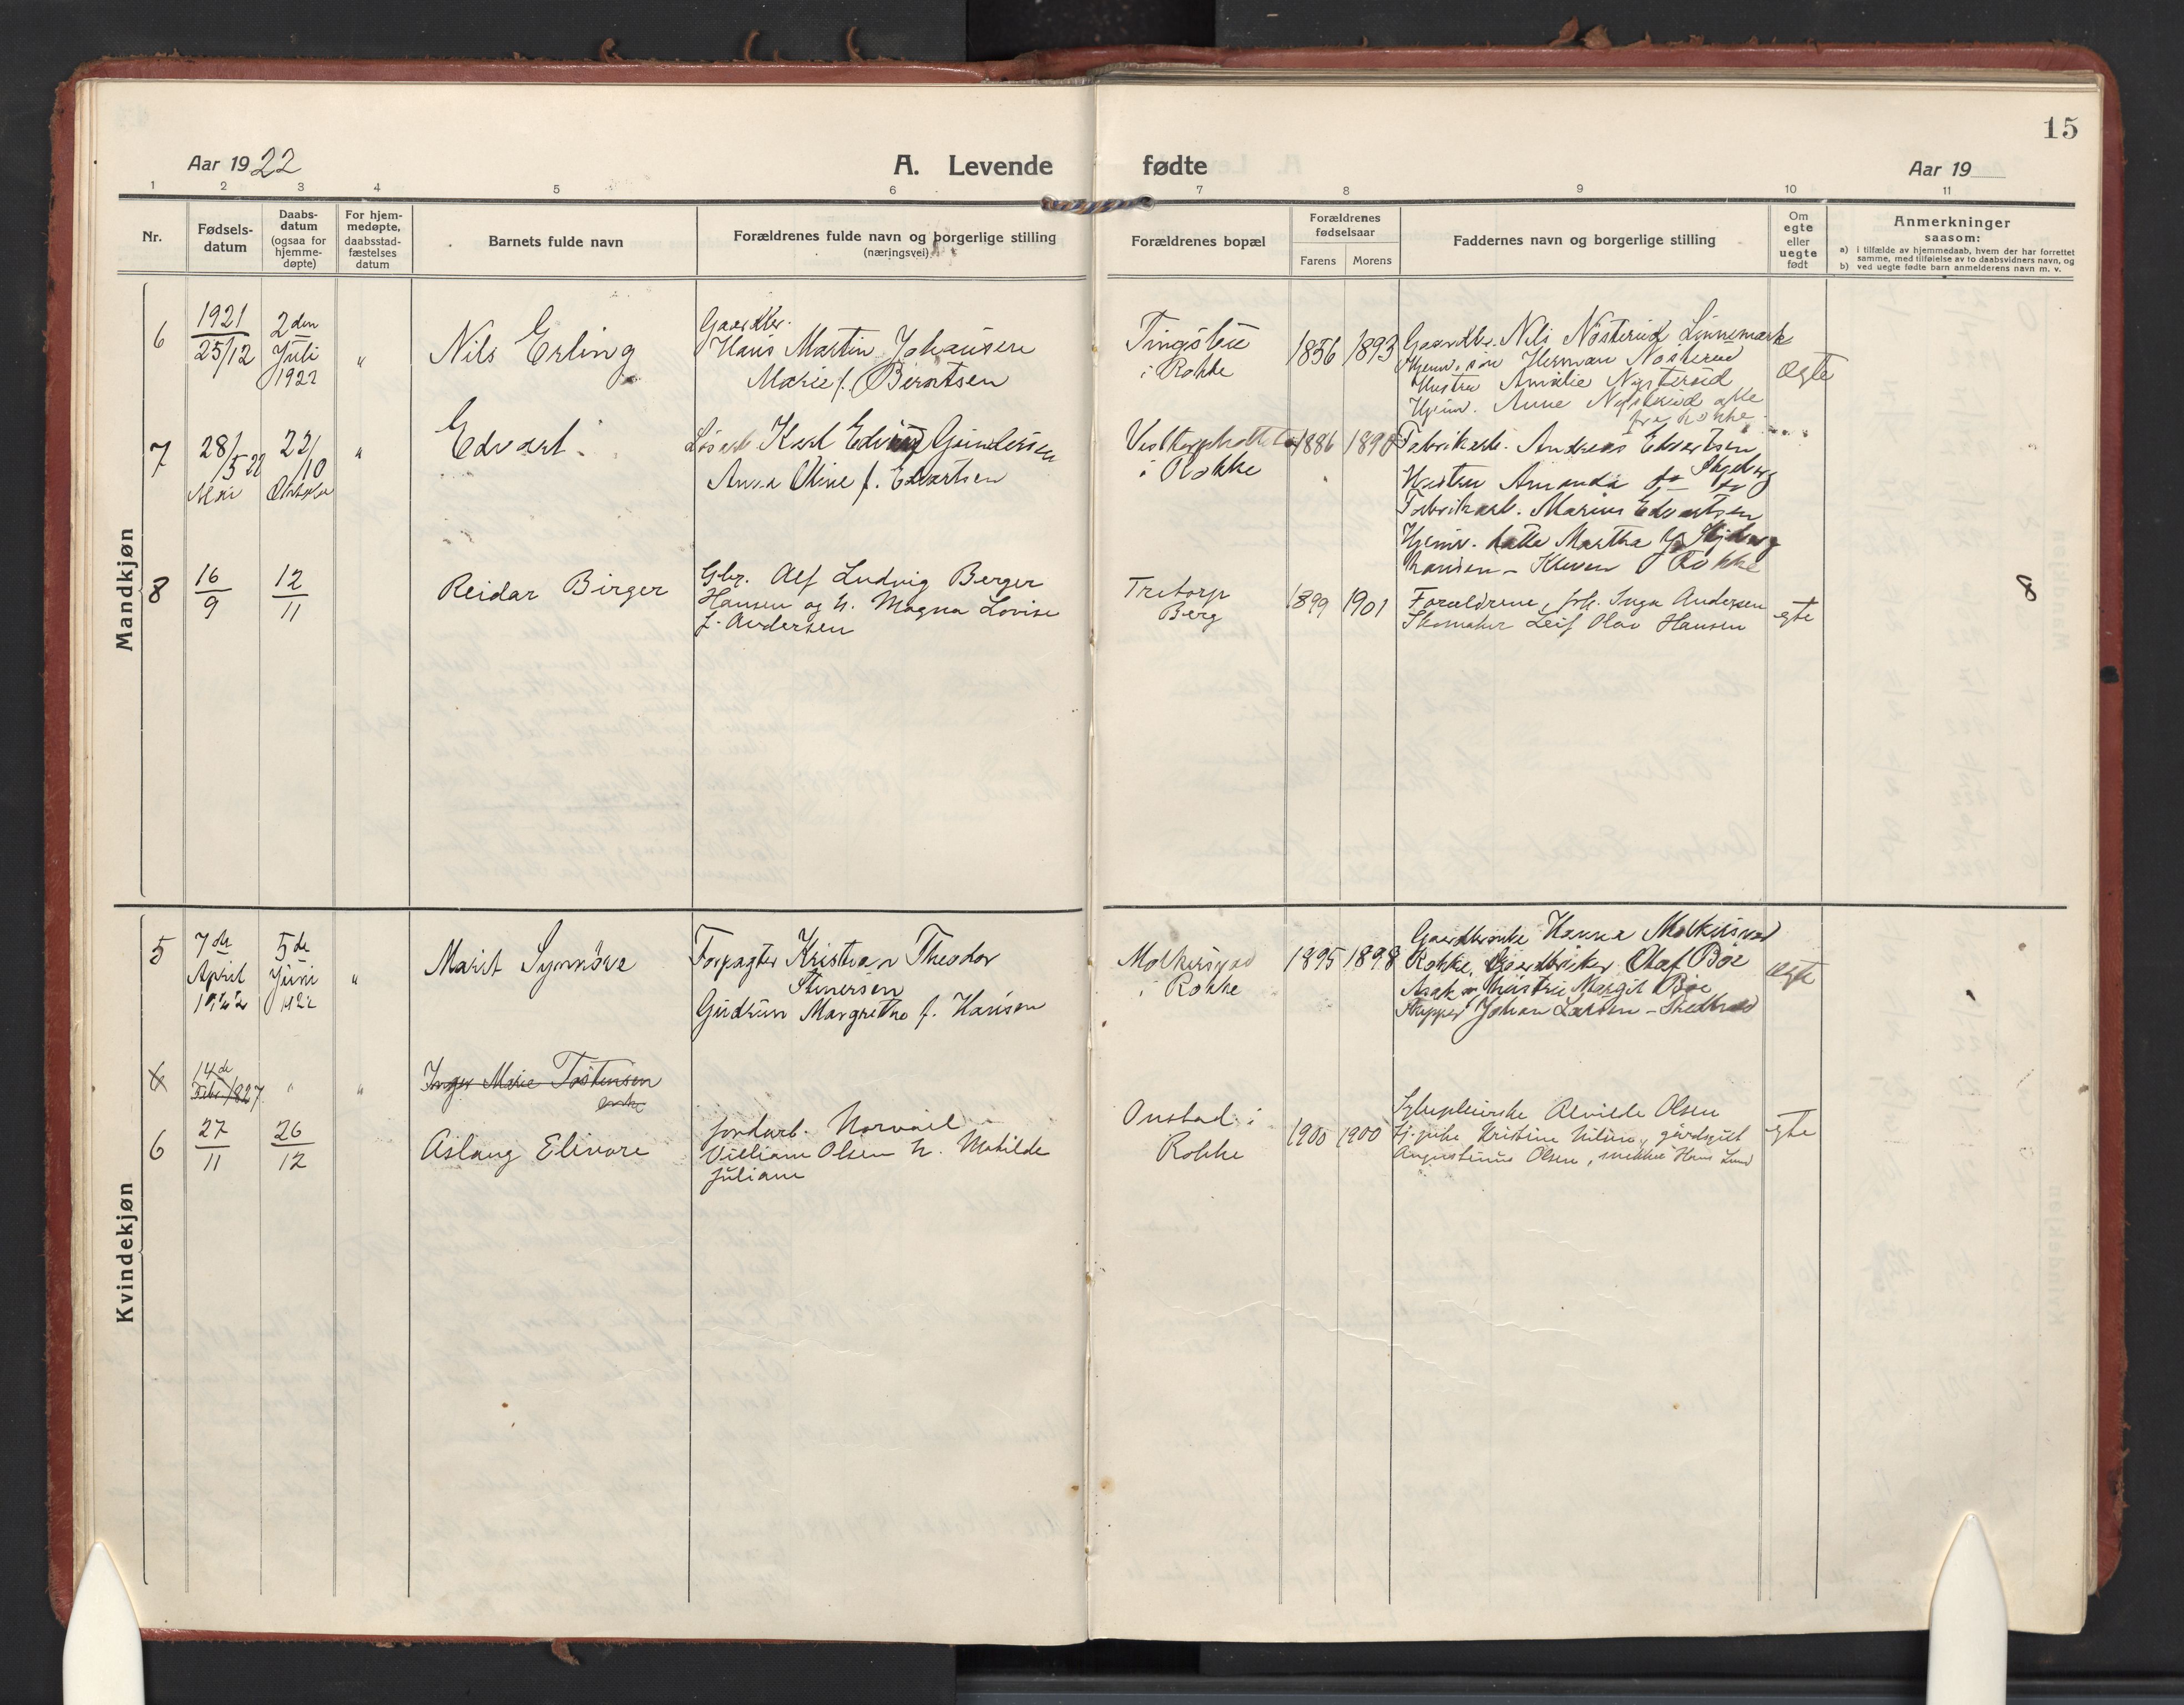 15
Aar 1922
A. Levende fødte
Aar 19
1 2 3 4 5 6 7 8 9 10 11
Nr.
Fødsels-
datum
Daabs-
datum
(ogsaa for
hjemme-
døpte)
For hjem-
medøpte,
daabsstad-
fæstelses
datum
Barnets fulde navn
Forældrenes fulde navn og borgerlige stilling
(næringsvei)
Forældrenes bopæl
Forældrenes
fødselsaar
Farens Morens
Faddernes navn og borgerlige stilling
Om
egte
eller
uegte
født
Anmerkninger
saasom:
a) i tilfælde av hjemmedaab, hvem der har forrettet
samme, med tilføielse av to daabsvidners navn, og
b) ved uegte fødte barn anmelderens navn m. v.
Mandkjøn
6
1921
25/12
2den
Juli
1922
"
Nils Erling
Gaardbr.
Hans Martin Johansen
Marie f. Berntsen
Tingstue
i Rokke
1856 1893
Gaardbr. Nils Nøsterud Linnemark
Hjemv. søn Herman Nøsterud
Hustru Amalie Nøsterud
Hjemv. Anne Nøsterud alle
fra Rokke
Ægte
7
28/5 22
Mai
22/10
Oktober
"
Edvart
Løsarb Karl Edvin Gundersen
Anna Oline f. Edvartsen
i Rokke
1886 1890
Fabrikarb. Andreas Edvartsen
Hustru Amanda
Fabrikarb. Marius Edvartsen
Hjemv. datter Martha
Rokke
8
16
9
12
11
Reidar Birger
Gbr. Alf Ludvig Berger
Hansen og h. Magna Lovise
f. Andersen
Tretorp
Berg
1899 1901
Forældrene, frk. Inga Andersen
Skomaker Leif Olav Hansen
egte
8
Kvindekjøn
5
7de
April
1922
5de
Juni
1922
"
Marit Synnöve
Forpagter Kristian Theodor
Stenersen
Gudrun Margrethe f. Hansen
i Rokke
1895 1898
Hanna
Rokke, Gaardbruker Olaf Böe
Asak, Hustru Margit Böe
Skipper Johan Larsen
ægte
6
14de
Febr 1827
"
"
Inger Marie Tostensen
enke
6
27
11
26
12
Aslaug Elinore
Jordarb. Norvail
Villiam Olsen h. Mathilde
Juliane
Onstad i
Rokke
1900 1900
Alvilde Olsen
Kristine gårdsgut
Augustinus Olsen, snekker Hans Lund
egte